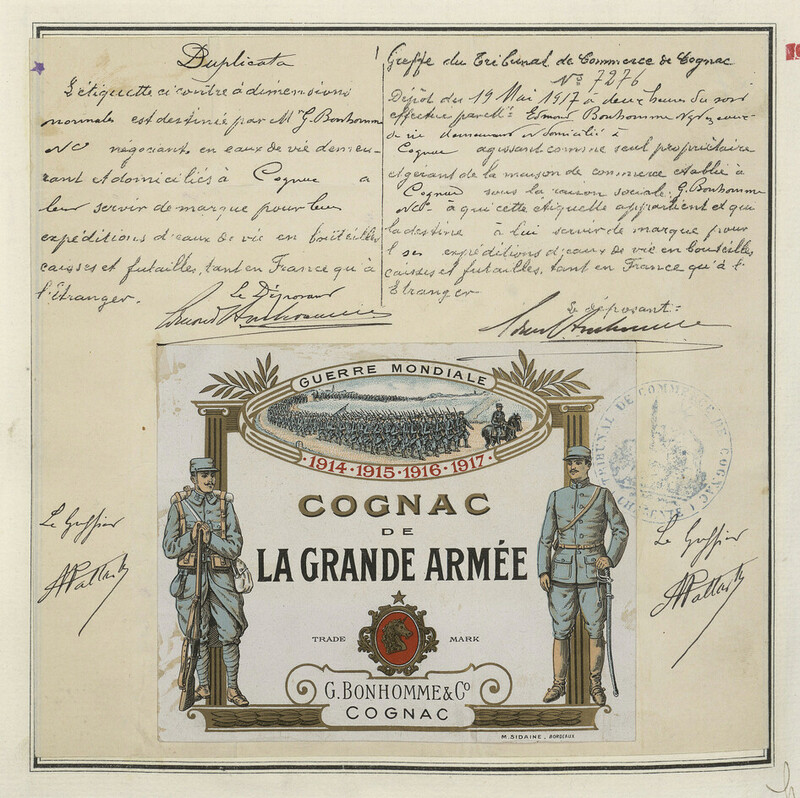 Duplicata
L'étiquette ci contre à dimensions
normales est destinée par Mr G. Bonhomme
& Co négociant en eaux de vie demeu-
rant et domiciliés à Cognac a
leur servir de marque pour leur
expéditions d'eaux de vie en bouteilles
caisses et futailles, tant en France qu'à
l'étranger.
Le Déposant
Greffe du Tribunal de Commerce de Cognac
No 7276
Dépôt du 19 Mai 1917 à deux heures du soir
effectué par Mr Edmond Bonhomme Ngt en eaux-
de vie demeurant et domicilié à
Cognac agissant comme seul propriétaire
et gérant de la maison de commerce établie à
Cognac sous la raison sociale: G. Bonhomme
& Co à qui cette étiquette appartient et qui
la destine à lui servir de marque pour
ses expéditions d'eaux de vie en bouteilles
caisses et futailles, tant en France qu'à l'
Etranger
Le déposant:
GUERRE MONDIALE
·1914·1915·1916·1917·
COGNAC
DE
LA GRANDE ARMÉE
TRADE MARK
G. BONHOMME & Co
COGNAC
M. SIDAINE, BORDEAUX
TRIBUNAL DE COMMERCE DE COGNAC
Le Greffier
Le Greffier